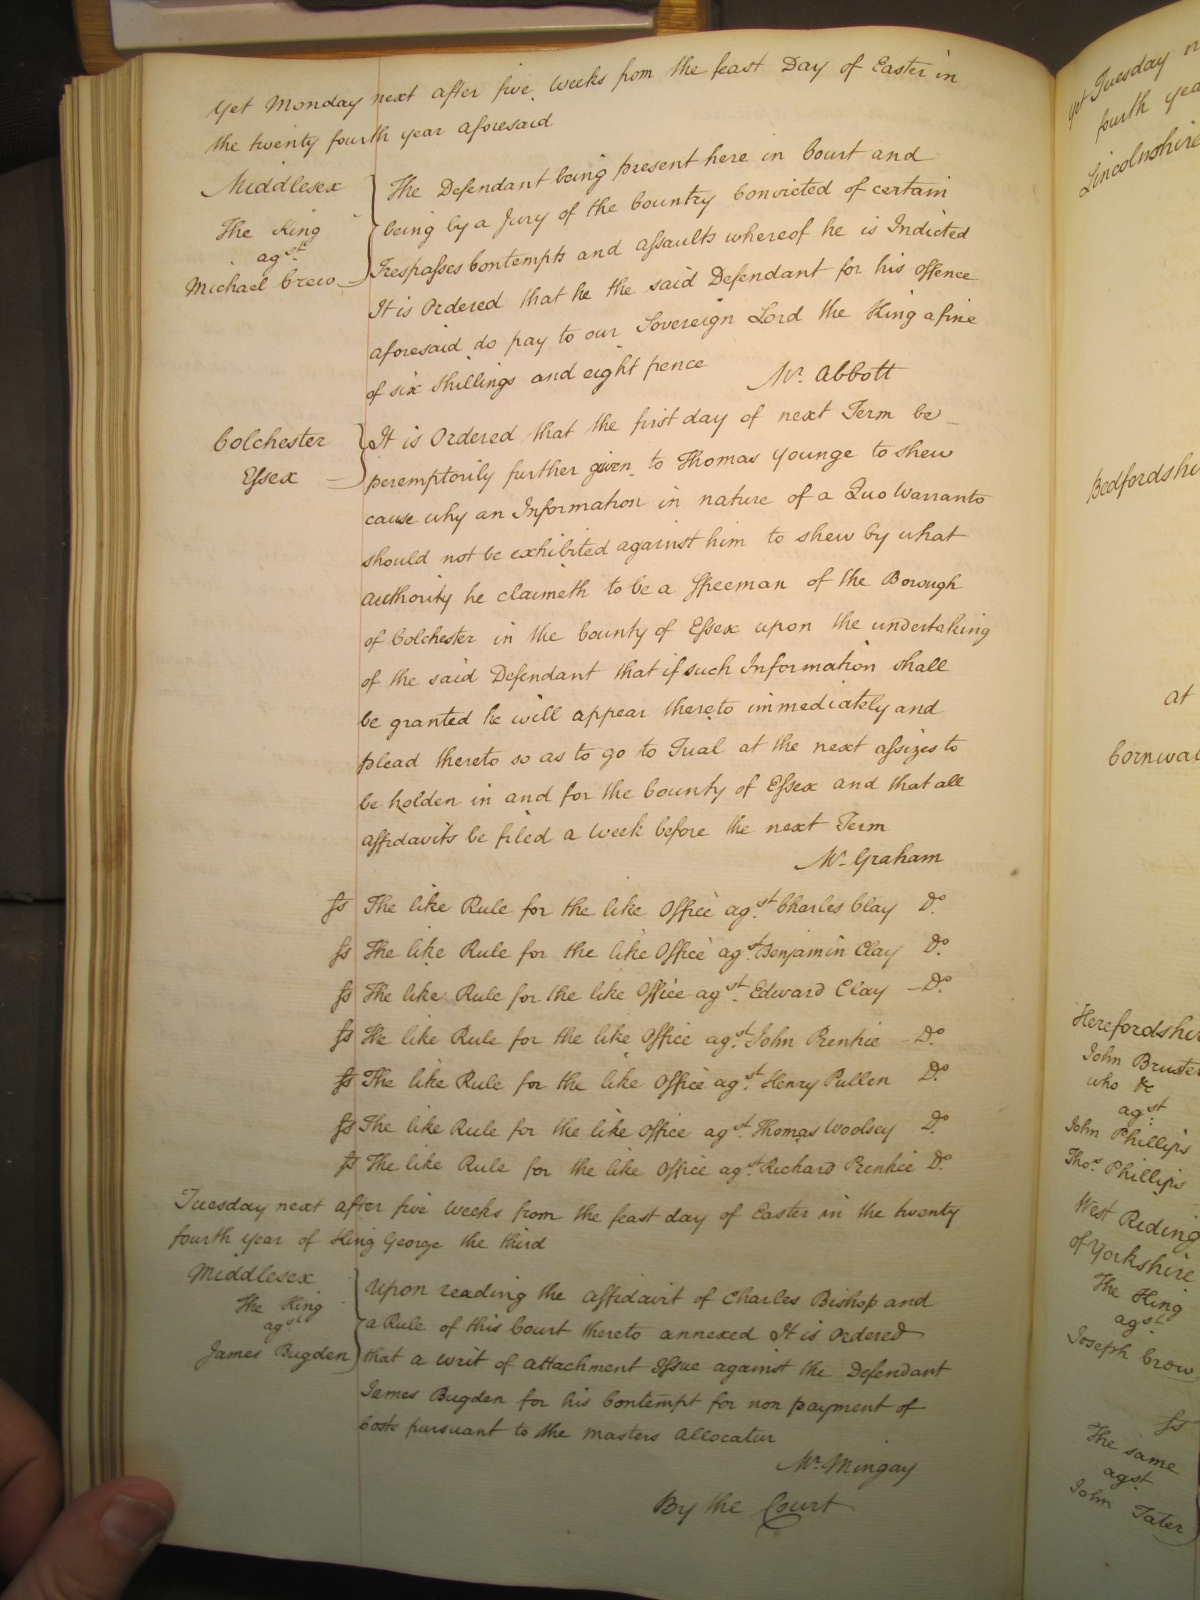 Yet Monday next after five Weeks from the feast Day of Easter in
the twenty fourth year aforesaid
Middlesex
The King
agst.
Michael Crew
The Defendant being present here in Court and
being by a Jury of the Country Convicted of certain
Trespasses Contempts and assaults whereof he is Indicted
It is Ordered that he the said Defendant for his offence
aforesaid do pay to our Sovereign Lord the King a fine
of six Shillings and eight pence
Mr. Abbott
Colchester
Essex
It is Ordered that the first day of next Term be
peremptorily further given to Thomas Younge to shew
cause why an Information in nature of a Quo Warranto
should not be exhibited against him to shew by what
authority he claimeth to be a Freeman of the Borough
of Colchester in the County of Essex upon the undertaking
of the said Defendant that if such Information shall
be granted he will appear thereto immediately and
plead thereto so as to go to Trial at the next assizes to
be holden in and for the County of Essex and that all
affidavits be filed a Week before the next Term
Mr. Graham
ss The like Rule for the like Office agst. Charles Clay Do.
ss The like Rule for the like Office agst. Benjamin Clay Do.
ss The like Rule for the like Office agst. Edward Clay Do.
ss The like Rule for the like Office agst. John Prentice Do.
ss The like Rule for the like Office agst. Henry Pullen Do.
ss The like Rule for the like Office agst. Thomas Woolsey Do.
ss The like Rule for the like Office agst. Richard Prentice Do.
Tuesday next after five Weeks from the feast day of Easter in the twenty
fourth year of King George the third
Middlesex
The King
agst.
James Bugden
Upon reading the affidavit of Charles Bishop and
a Rule of this Court thereto annexed It is Ordered
that a writ of attachment Issue against the Defendant
James Bugden for his Contempt for non payment of
Costs pursuant to the masters Allocatur
Mr. Mingay
By the Court
Yet Tuesday
fourth
Lincolnshire
at
Herefordshire
John
who &c
agst
John Phillips
Thos. Phillips
West Riding
of Yorkshire
The King
agst
Joseph Crow
ss
The same
agst
John Tater